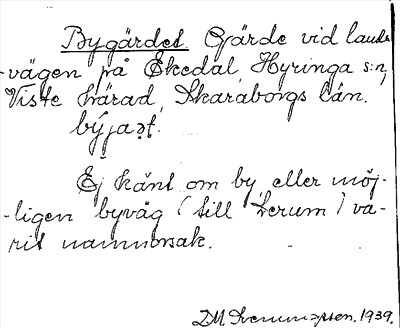 Bygärdet Gärde vid lands-
-vägen på Ekedal, Hyringa s:n,
Viste härad, Skaraborgs län.
býjaət.
Ej känt om by eller möj-
-ligen byväg (till Lerum) va-
rit namnorsak.
1939.